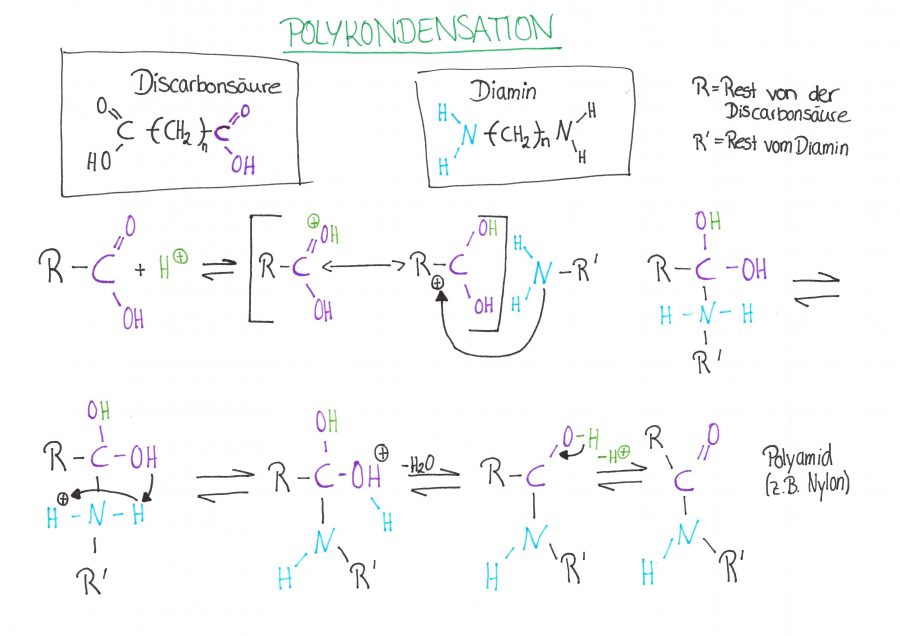 POLYKONDENSATION
Discarbonsäure
O
C-(CH2)n-C
O
HO
OH
Diamin
H
N-(CH2)n-N
H
H
H
R=Rest von der
Discarbonsäure
R'=Rest vom Diamin
R-C
O
OH
+ H⊕
⇌
[R-C
⊕
OH
OH
⟷
R-C
⊕
OH
OH]
H
N-R'
H
OH
R-C-OH
H-N-H
R'
⇌
OH
R-C-OH
⊕
H-N-H
R'
⇌
OH
R-C-OH
⊕
H
N
H
R'
-H2O
⇌
O-H
R-C
N
H
R'
-H⊕
⇌
R
O
C
N
H
R'
Polyamid
(z.B. Nylon)